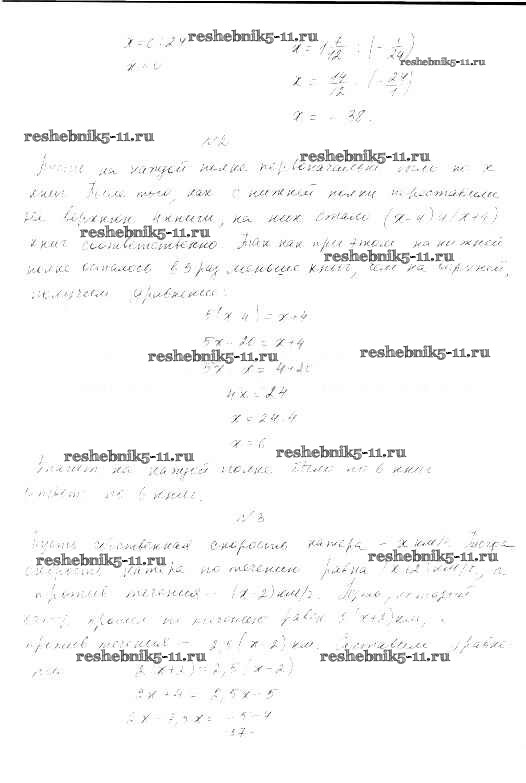 x = 1 7/12 : (-1/24)
x = -38.
reshebnik5-11.ru
reshebnik5-11.ru
reshebnik5-11.ru
№2
reshebnik5-11.ru
на каждой полке первоначально было по x
книг. После того, как с нижней полки переставили
на верхнюю 4 книги, на них стало (x-4) и (x+4)
reshebnik5-11.ru
книг соответственно. Так как при этом на нижней
reshebnik5-11.ru
полке осталось в 5 раз меньше книг, чем на верхней,
получаем уравнение:
5(x-4)=x+4
5x-20=x+4
reshebnik5-11.ru
reshebnik5-11.ru
5x-x=4+20
4x=24
x=24:4
x=6
reshebnik5-11.ru
reshebnik5-11.ru
Значит на каждой полке было по 6 книг
Ответ: по 6 книг.
№3
Пусть собственная скорость катера - x км/ч. Тогда
reshebnik5-11.ru
reshebnik5-11.ru
скорость катера по течению равна (x+2) км/ч, а
против течения - (x-2) км/ч. Путь, который
катер прошел по течению равен (x+2) км,
против течения - 2,5(x-2) км. Составим уравне-
reshebnik5-11.ru
reshebnik5-11.ru
2(x+2)=2,5(x-2)
2x+4=2,5x-5
2x-2,5x=-5-4
37